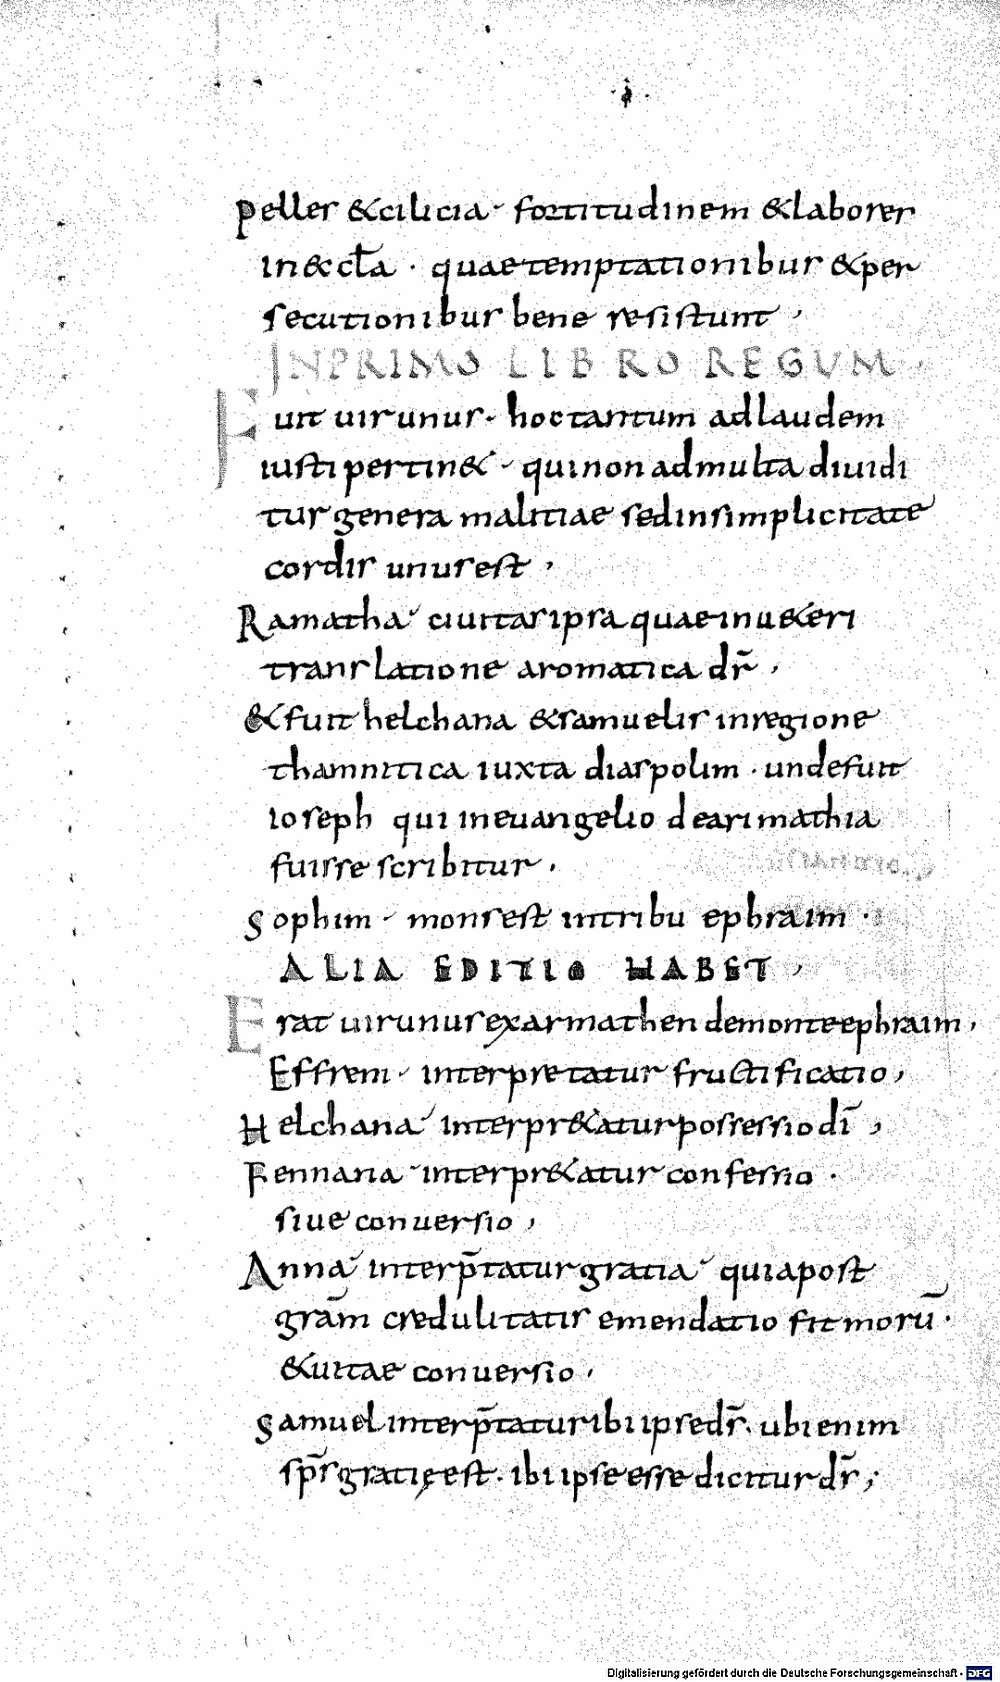 Pelles & cilicia fortitudinem & labores
in & cl̄a · quae temptationibus & per
secutionibus bene resistunt,
IN PRIMO LIBRO REGUM,
Fuit uir unus · hoc tantum ad laudem
iusti pertin& · qui non ad multa diuidi
tur genera malitiae sed in simplicitate
cordis unus est,
Ramatha ciuitas ipsa quae in u&eri
translatione aromatica dr̄,
& fuit helchana & samuelis in regione
thamnitica iuxta diaspolim · unde fuit
ioseph qui in euangelio de arimathia
fuisse scribitur,
Sophim mons est in tribu ephraim ·
ALIA EDITIO HABET,
Erat uir unus ex armathen de monte ephraim,
Effrem · interpretatur fructificatio,
Helchana interpr&atur possessio dī,
Fennana interpr&atur confessio ·
siue conuersio,
Anna interp̄tatur gratia quia post
grām credulitatis emendatio fit morū ·
& uitae conuersio,
Samuel interp̄tatur ibi ipse dr̄. ubi enim
sp̄s gratię est · ibi ipse esse dicitur dr̄;
Digitalisierung gefördert durch die Deutsche Forschungsgemeinschaft - DFG